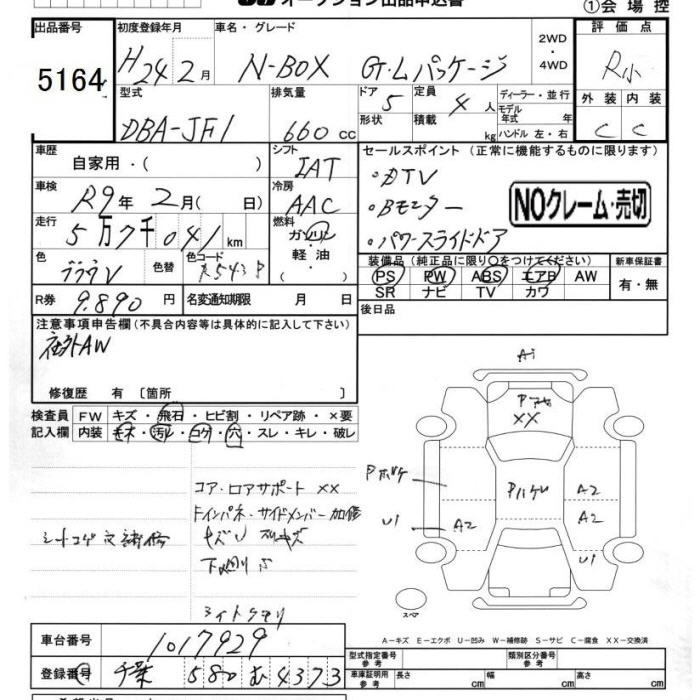 オークション出品申込書
①会場控
出品番号 初度登録年月 車名・グレード 評価点
5164 H24 2月 N-BOX G・Lパッケージ 2WD・4WD R小
型式 排気量 ドア 5 定員 4人 ディーラー・並行 外装 内装
DBA-JF1 660cc 形状 積載 kg モデル年式 年 ハンドル 左・右 C C
車歴 自家用・( ) シフト IAT セールスポイント (正常に機能するものに限ります)
車検 R9年 2月( 日) 冷房 AAC ・DTV
・Bモニター
・パワースライドドア
NOクレーム・売切
走行 5万7千041km 燃料 ガソリン 軽油 ・( )
色 ブラウン 色替 色コード 装備品 (純正品に限り○をつけてください) 新車保証書
PS PW ABS エアB AW 有・無
SR ナビ TV カワ
R券 9,890円 名変通知期限 月 日 後日品
注意事項申告欄 (不具合内容等は具体的に記入して下さい)
社外AW
修復歴 有 〔箇所 〕
検査員 FW キズ・飛石・ヒビ割・リペア跡・×要
記入欄 内装 モネ・汚レ・コゲ・穴・スレ・キレ・破レ
コア・ロアサポート ××
インパネ・サイドメンバー加修
A1
××
A2
A2
A2
U1
U1
スペア
A−キズ E−エクボ U−凹み W−補修跡 S−サビ C−腐食 ××−交換済
車台番号 1017929
登録番号 千葉 580 む 4373
型式指定番号 参考 類別区分番号 参考
車庫証明用 参考 長さ cm 幅 cm 高さ cm